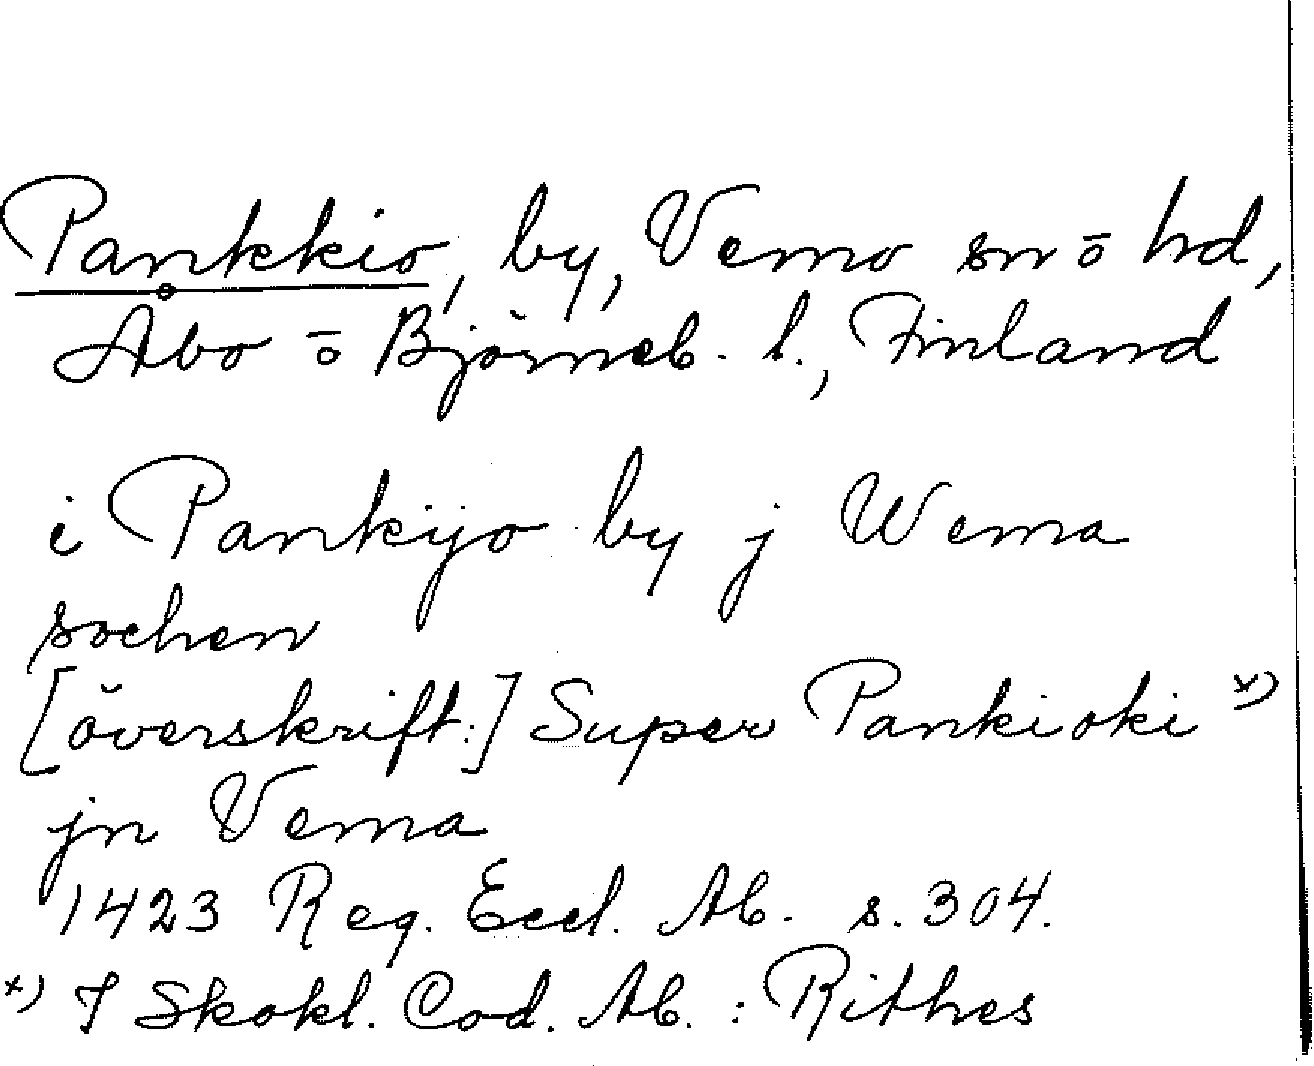 Pankkio, by, Vemo sn o hd,
Åbo o Björneb. l., Finland
i Pankijo by j Wema
sochen
[överskrift:] Super Pankioki x)
jn Vema
1423 Reg. Eccl. Ab. s. 304.
x) I Skokl. Cod. Ab. : Rithes